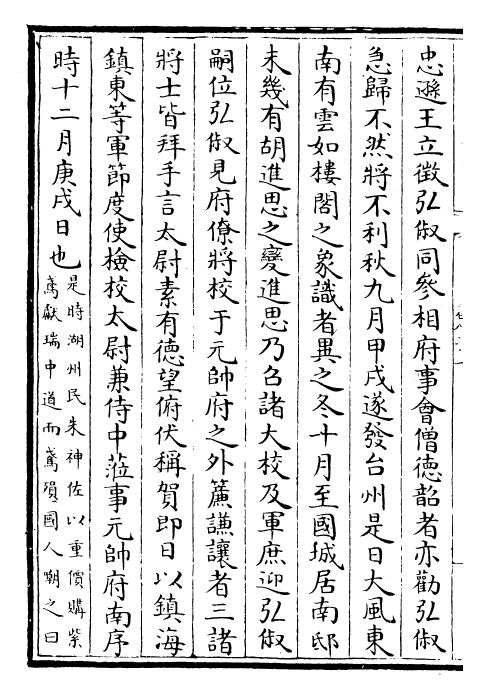 忠遜王立徴弘俶同參相府事會僧徳韶者亦勸弘俶
急歸不然將不利秋九月甲戌遂發台州是日大風東
南有雲如樓閣之象識者異之冬十月至國城居南邸
未幾有胡進思之變進思乃召諸大校及軍庶迎弘俶
嗣位弘俶見府僚將校于元帥府之外簾謙讓者三諸
將士皆拜手言太尉素有德望俯伏稱賀即日以鎮海
鎮東等軍節度使檢校太尉兼侍中蒞事元帥府南序
時十二月庚戌日也是時湖州民朱神佐以重價購紫
鳶獻瑞中道而鳶殞國人嘲之曰